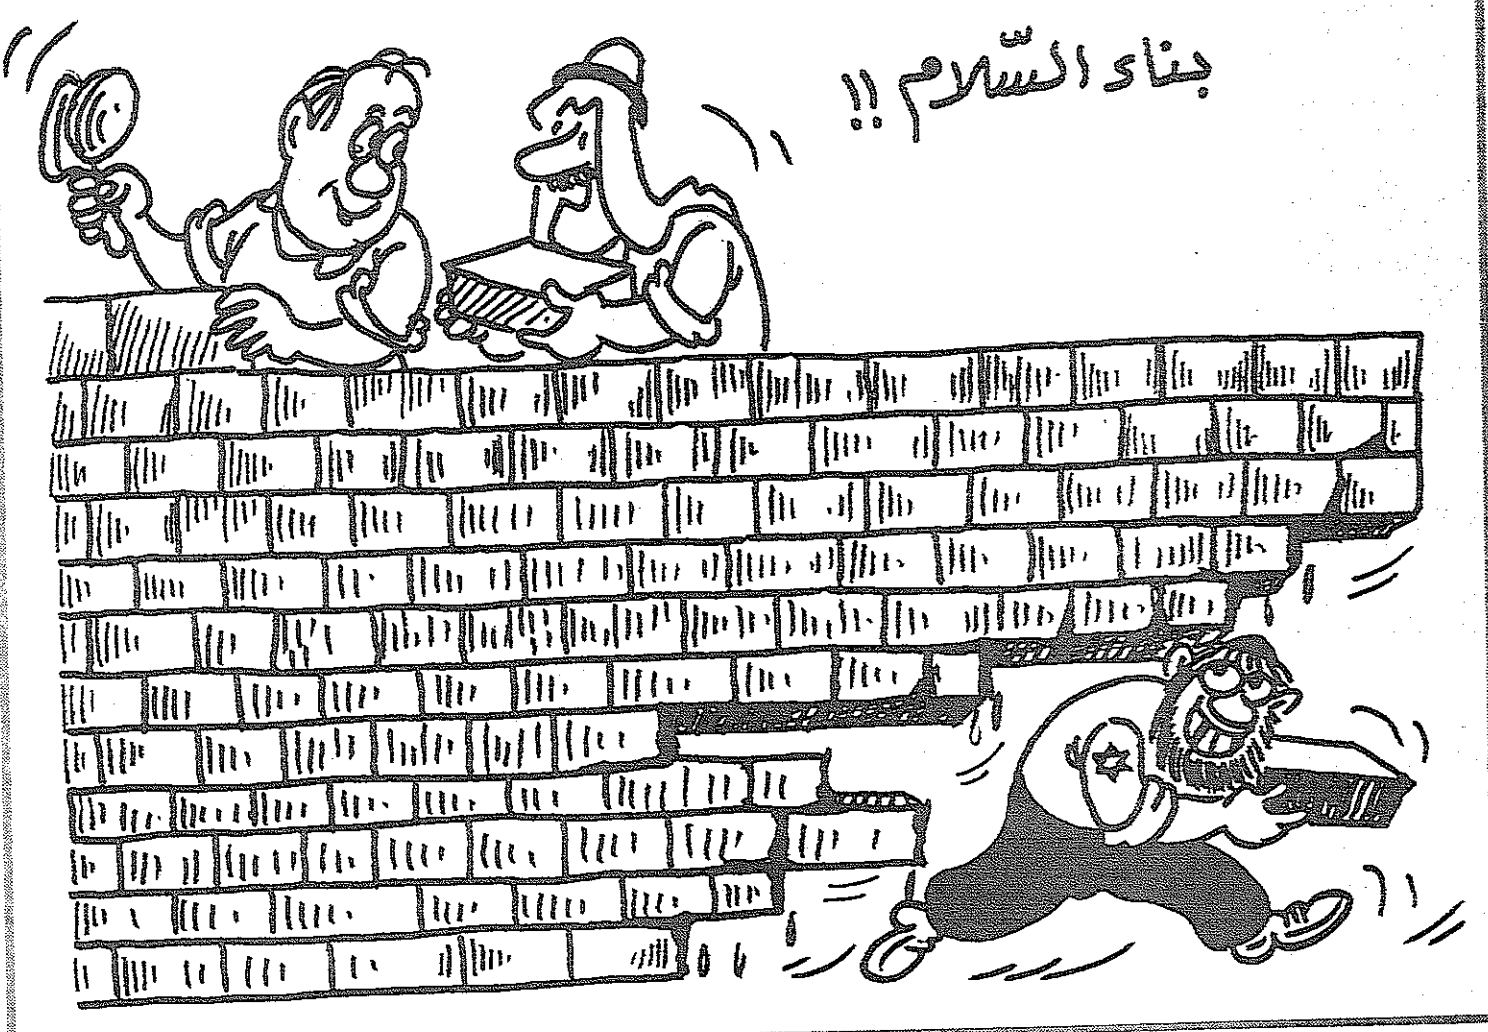 بناء السّلام !!